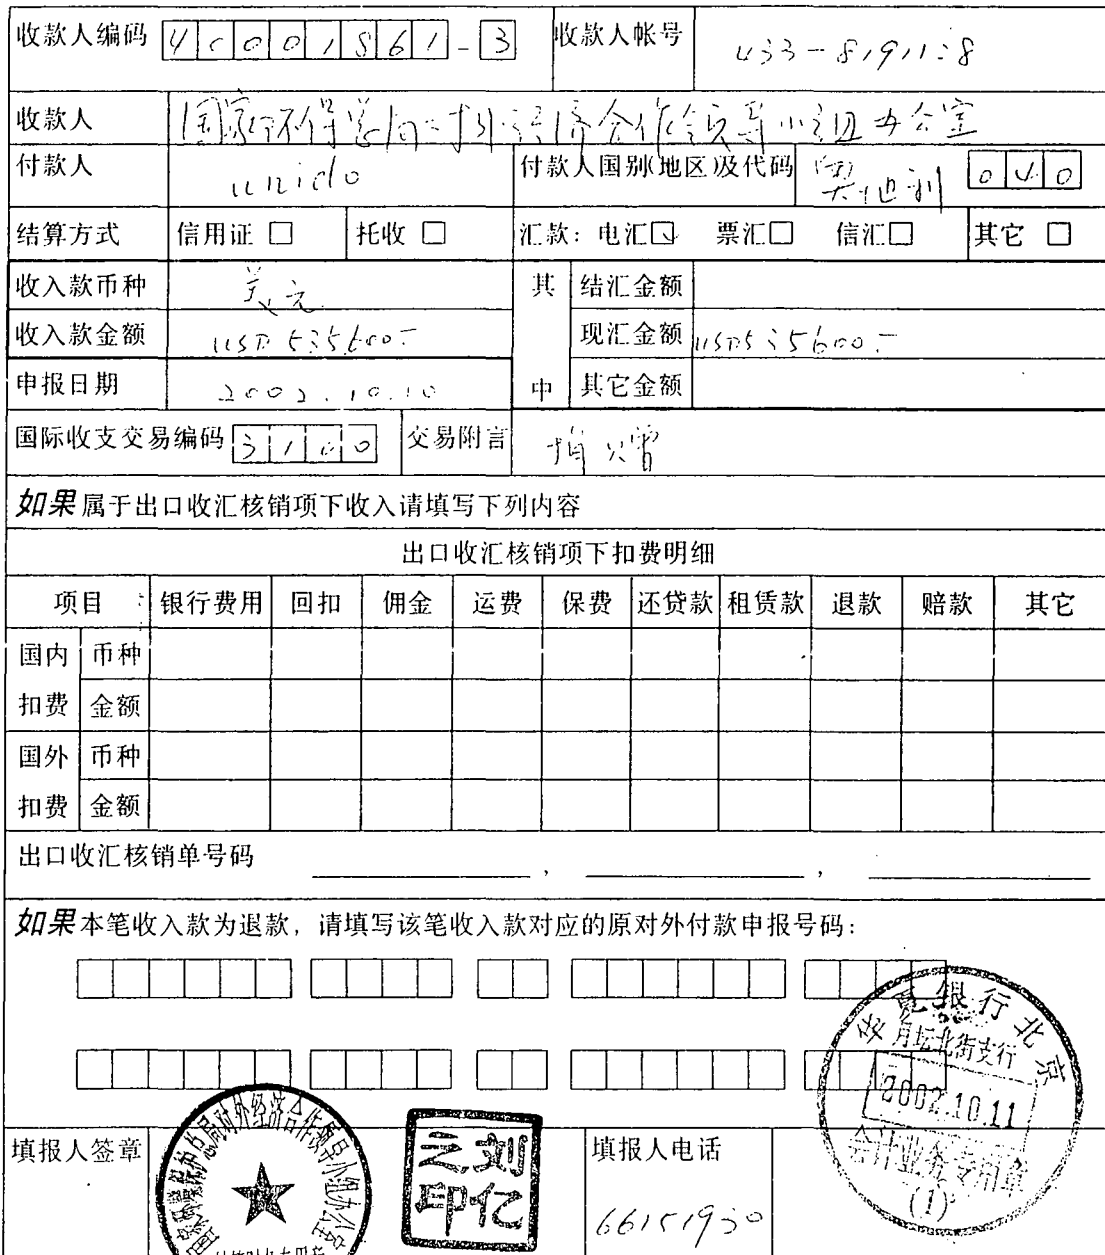 收款人编码 4C001861-3 收款人帐号 433-81911-8
收款人 国家环保总局对外经济合作领导小组办公室
付款人 unido 付款人国别(地区)及代码 奥地利 040
结算方式 信用证 □ 托收 □ 汇款：电汇☑ 票汇□ 信汇□ 其它 □
收入款币种 美元 其 结汇金额
收入款金额 USD 535600.- 现汇金额 USD535600.-
申报日期 2002.10.10 中 其它金额
国际收支交易编码 3100 交易附言 捐赠
如果属于出口收汇核销项下收入请填写下列内容
出口收汇核销项下扣费明细
项目 银行费用 回扣 佣金 运费 保费 还贷款 租赁款 退款 赔款 其它
国内 币种
扣费 金额
国外 币种
扣费 金额
出口收汇核销单号码 ， ，
如果本笔收入款为退款，请填写该笔收入款对应的原对外付款申报号码：
华夏银行北京
月坛北街支行
2002.10.11
会计业务专用章
(1)
填报人签章 国家环境保护总局对外经济合作领导小组办公室
刘亿之印
填报人电话 66151930